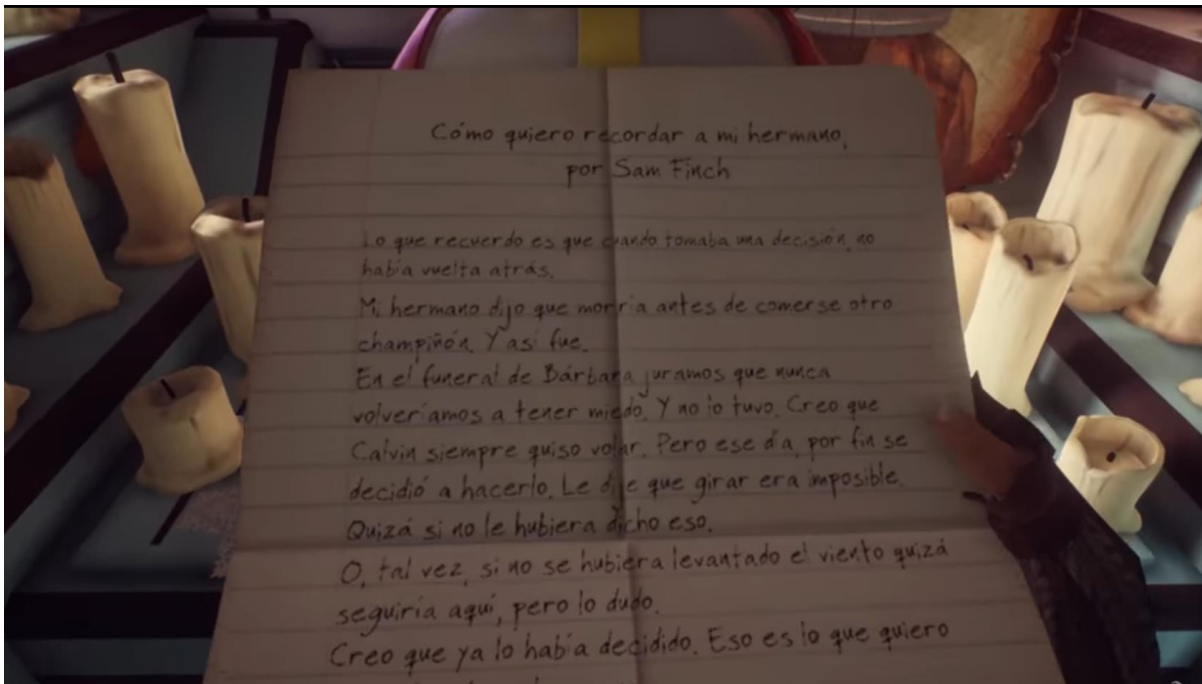 Cómo quiero recordar a mi hermano,
por Sam Finch
Lo que recuerdo es que cuando tomaba una decisión, no
había vuelta atrás.
Mi hermano dijo que morría antes de comerse otro
champiñón. Y así fue.
En el funeral de Bárbara juramos que nunca
volveríamos a tener miedo. Y no lo tuvo. Creo que
Calvin siempre quiso volar. Pero ese día, por fin se
decidió a hacerlo. Le dije que girar era imposible.
Quizá si no le hubiera dicho eso.
O, tal vez, si no se hubiera levantado el viento quizá
seguiría aquí, pero lo dudo.
Creo que ya lo había decidido. Eso es lo que quiero